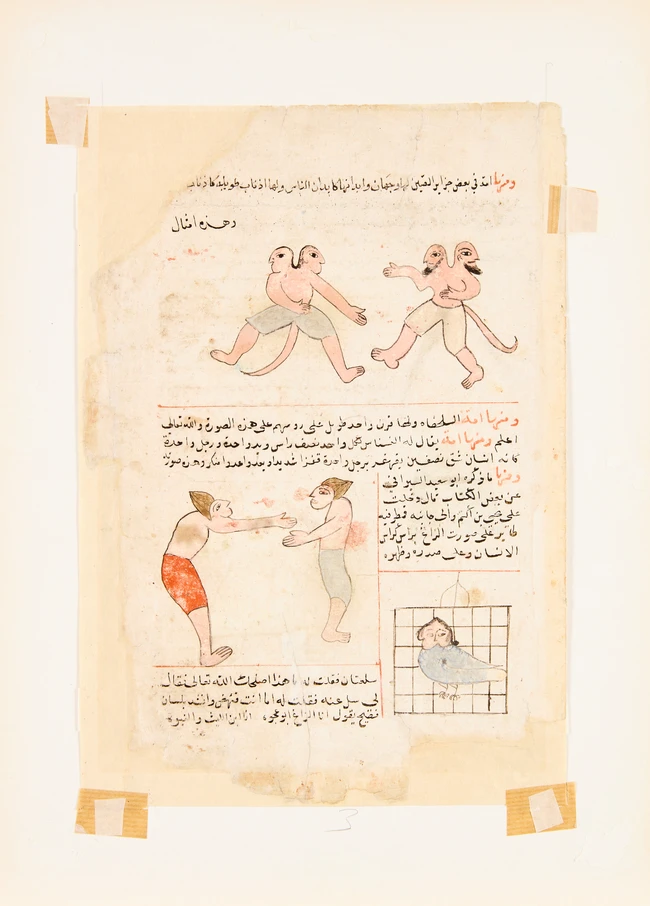 ومنها امة في بعض جزاير الصين لها وجهان وابدانها كابدان الناس ولها اذناب طويلة كاذناب
وهذه امثال
ومنها امة السلحفاه ولها قرن واحد طويل على روسهم على هذه الصورة والله تعالى
اعلم ومنها امة يقال له النسناس لكل واحد نصف راس ويد واحدة ورجل واحدة
كانه انسان شق نصفين يقفز برجل واحدة قفزا شديدا ويعدو عدوا منكرا وهذه صورة
ومنها ما ذكره ابو سعيد السيرافي
عن بعض الكتاب قال دخلت
على يحيى بن اكثم والى جانبه قمطر فيه
طاير على صورت الزاغ براس كراس
الانسان وعلى صدره وظهره
سلعتان فقلت له ما هذا اصلحك الله تعالى فقال
لي سل عنه فقلت له اما انت فنهض وانشد بلسان
فصيح يقول انا الزاغ ابو عجوه انا ابن الليث واللبوه
3